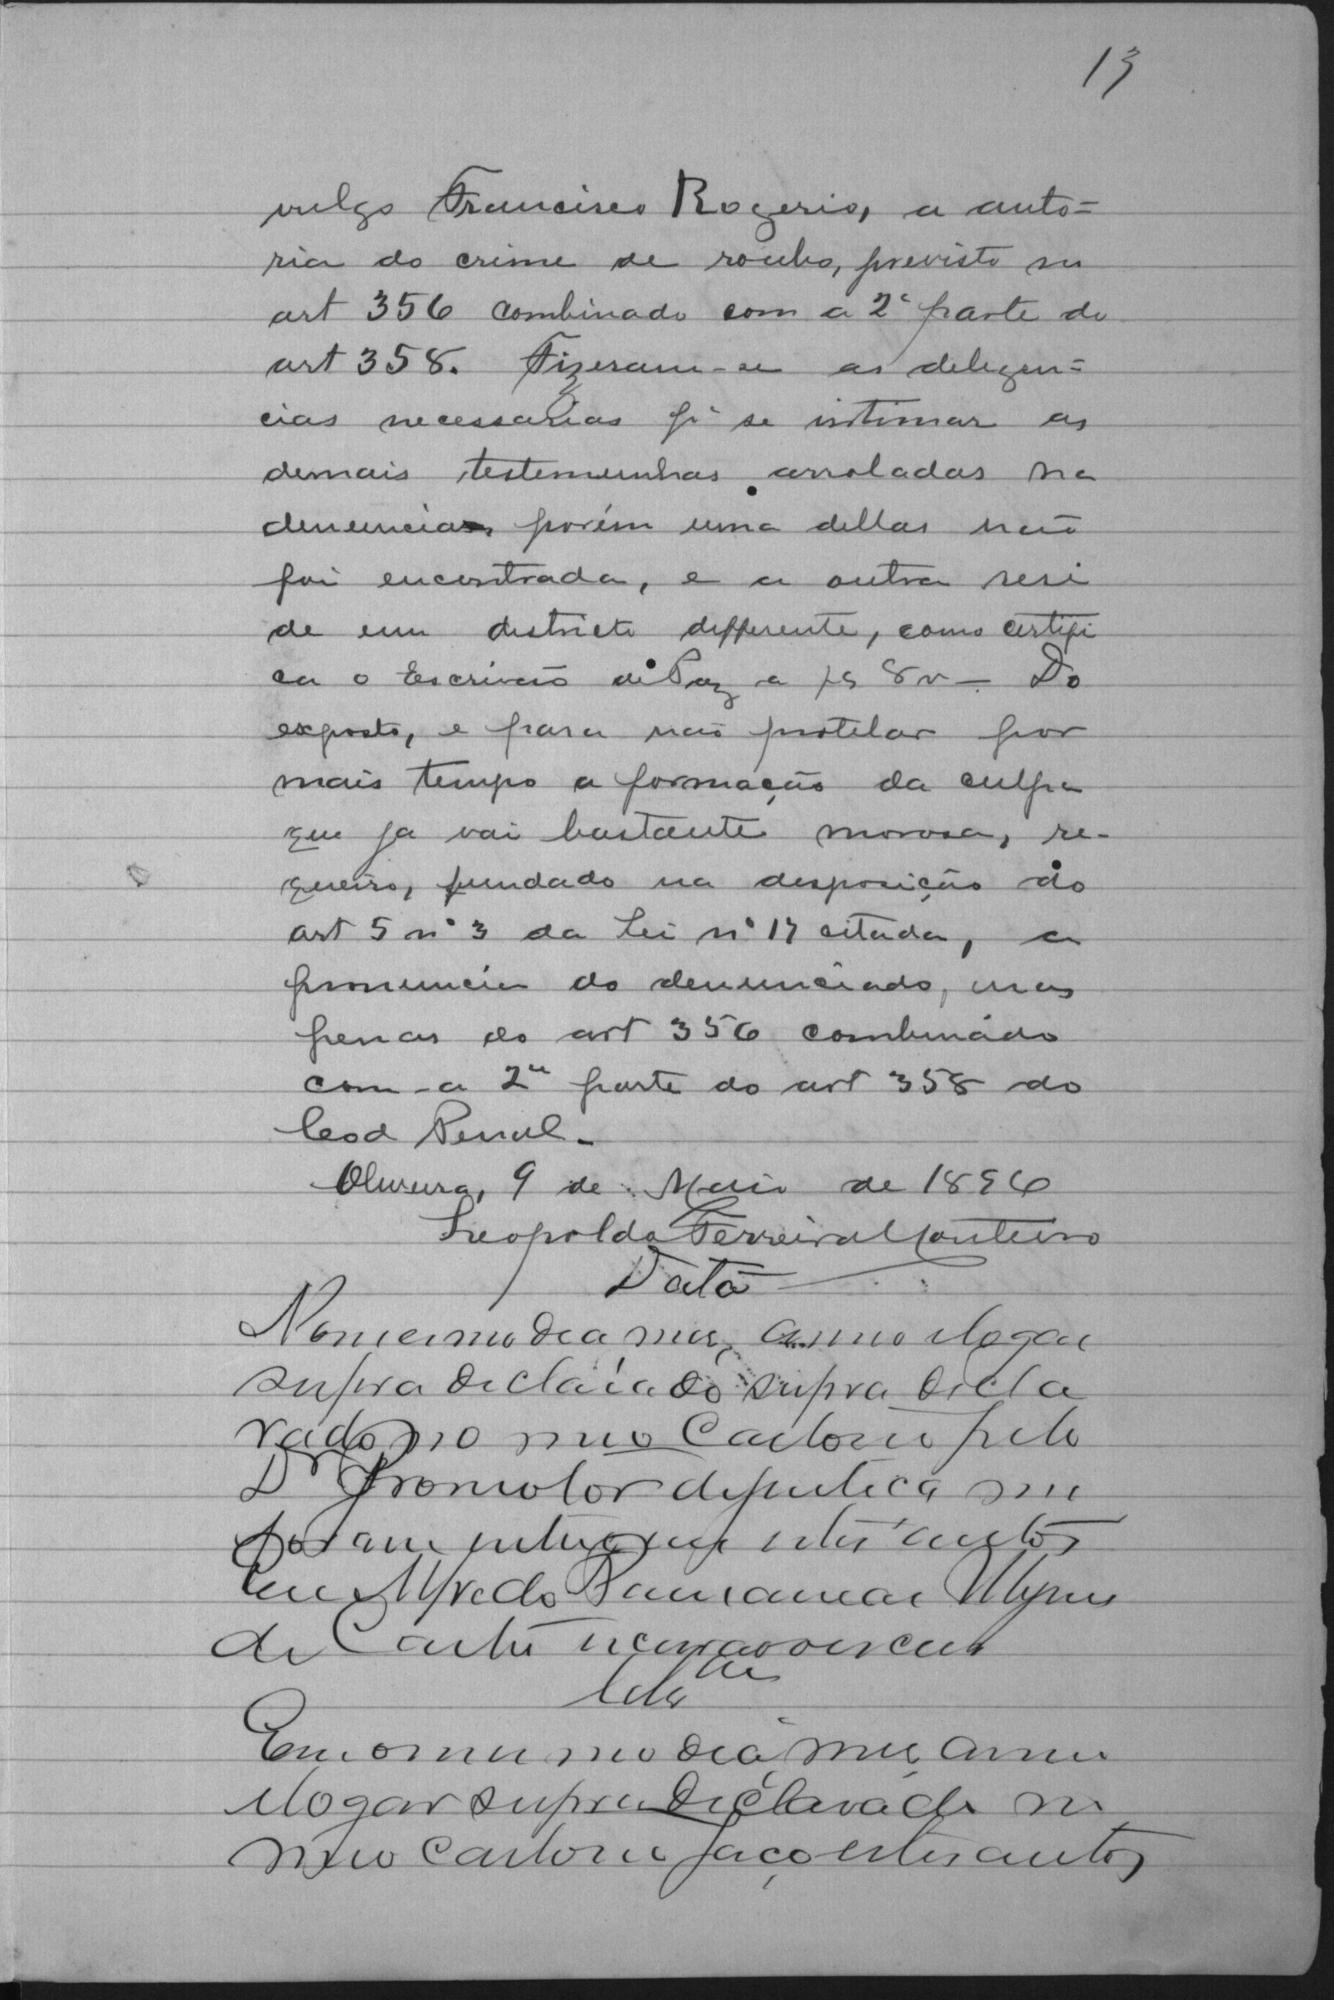 13
vulgo Francisco Rogerio, a auto=
ria do crime de roubo, previsto no
art 356 combinado com a 2ª parte do
art 358. Fizeram-se as deligen=
cias necessarias pª se intimar as
demais testemunhas arroladas na
denuncia, porém uma dellas não
foi encontrada, e a outra resi
de em districto differente, como certifi
ca o Escrivão de Paz a fs 8v - Do
exposto, e para não protelar por
mais tempo a formação da culpa
que ja vai bastante morosa, re-
queiro, fundado na desposição do
art 5 nº 3 da Lei nº 17 citada, a
pronuncia do denunciado, nas
penas do art 356 combinado
com a 2ª parte do art 358 do
Cod Penal.
Oliveira, 9 de Maio de 1896
Leopoldo Ferreira Monteiro
Data
No mesmo dia mes, anno e logar
supra declarado supra decla
rado no meo Cartorio pelo
Dr Promotor de justiça me
foram entregues estes autos
Eu Alfredo
de Castro escrivão escrevi
Clsão
Em o mesmo dia, mes, anno
e logar supra declarado no
meo cartorio faço estes autos